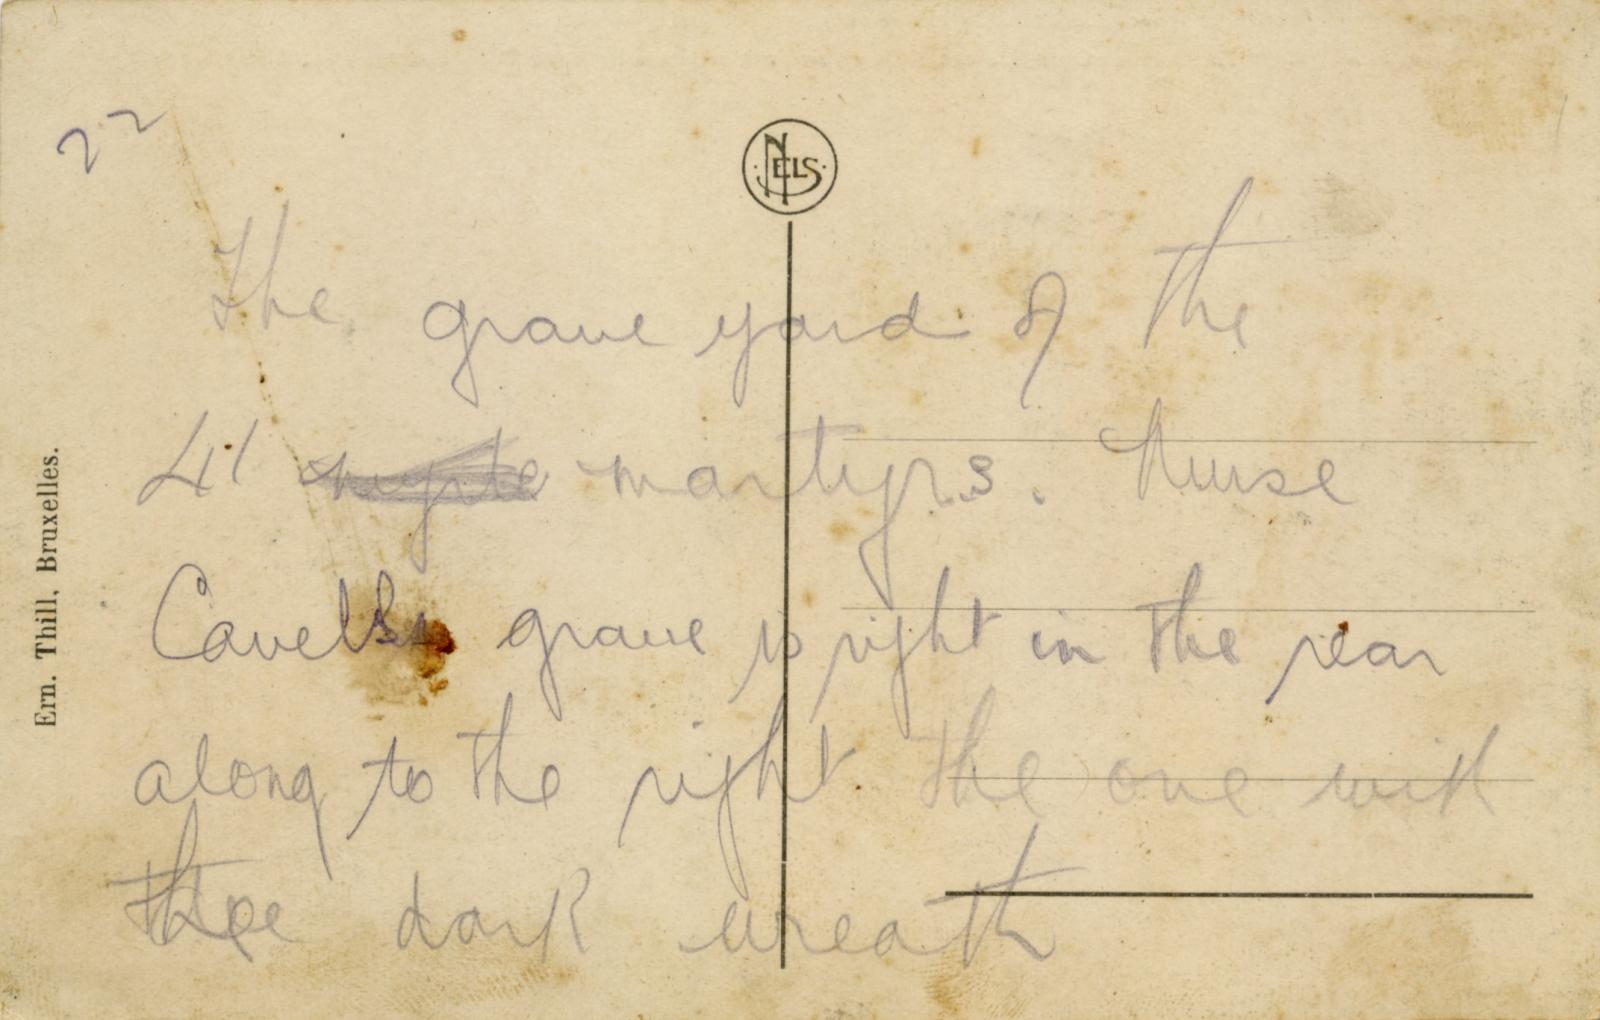 22
NELS
The grave yard of the
41 martyrs. Nurse
Cavells grave is right in the rear
along to the right the one with
the dark wreath
Ern. Thill, Bruxelles.